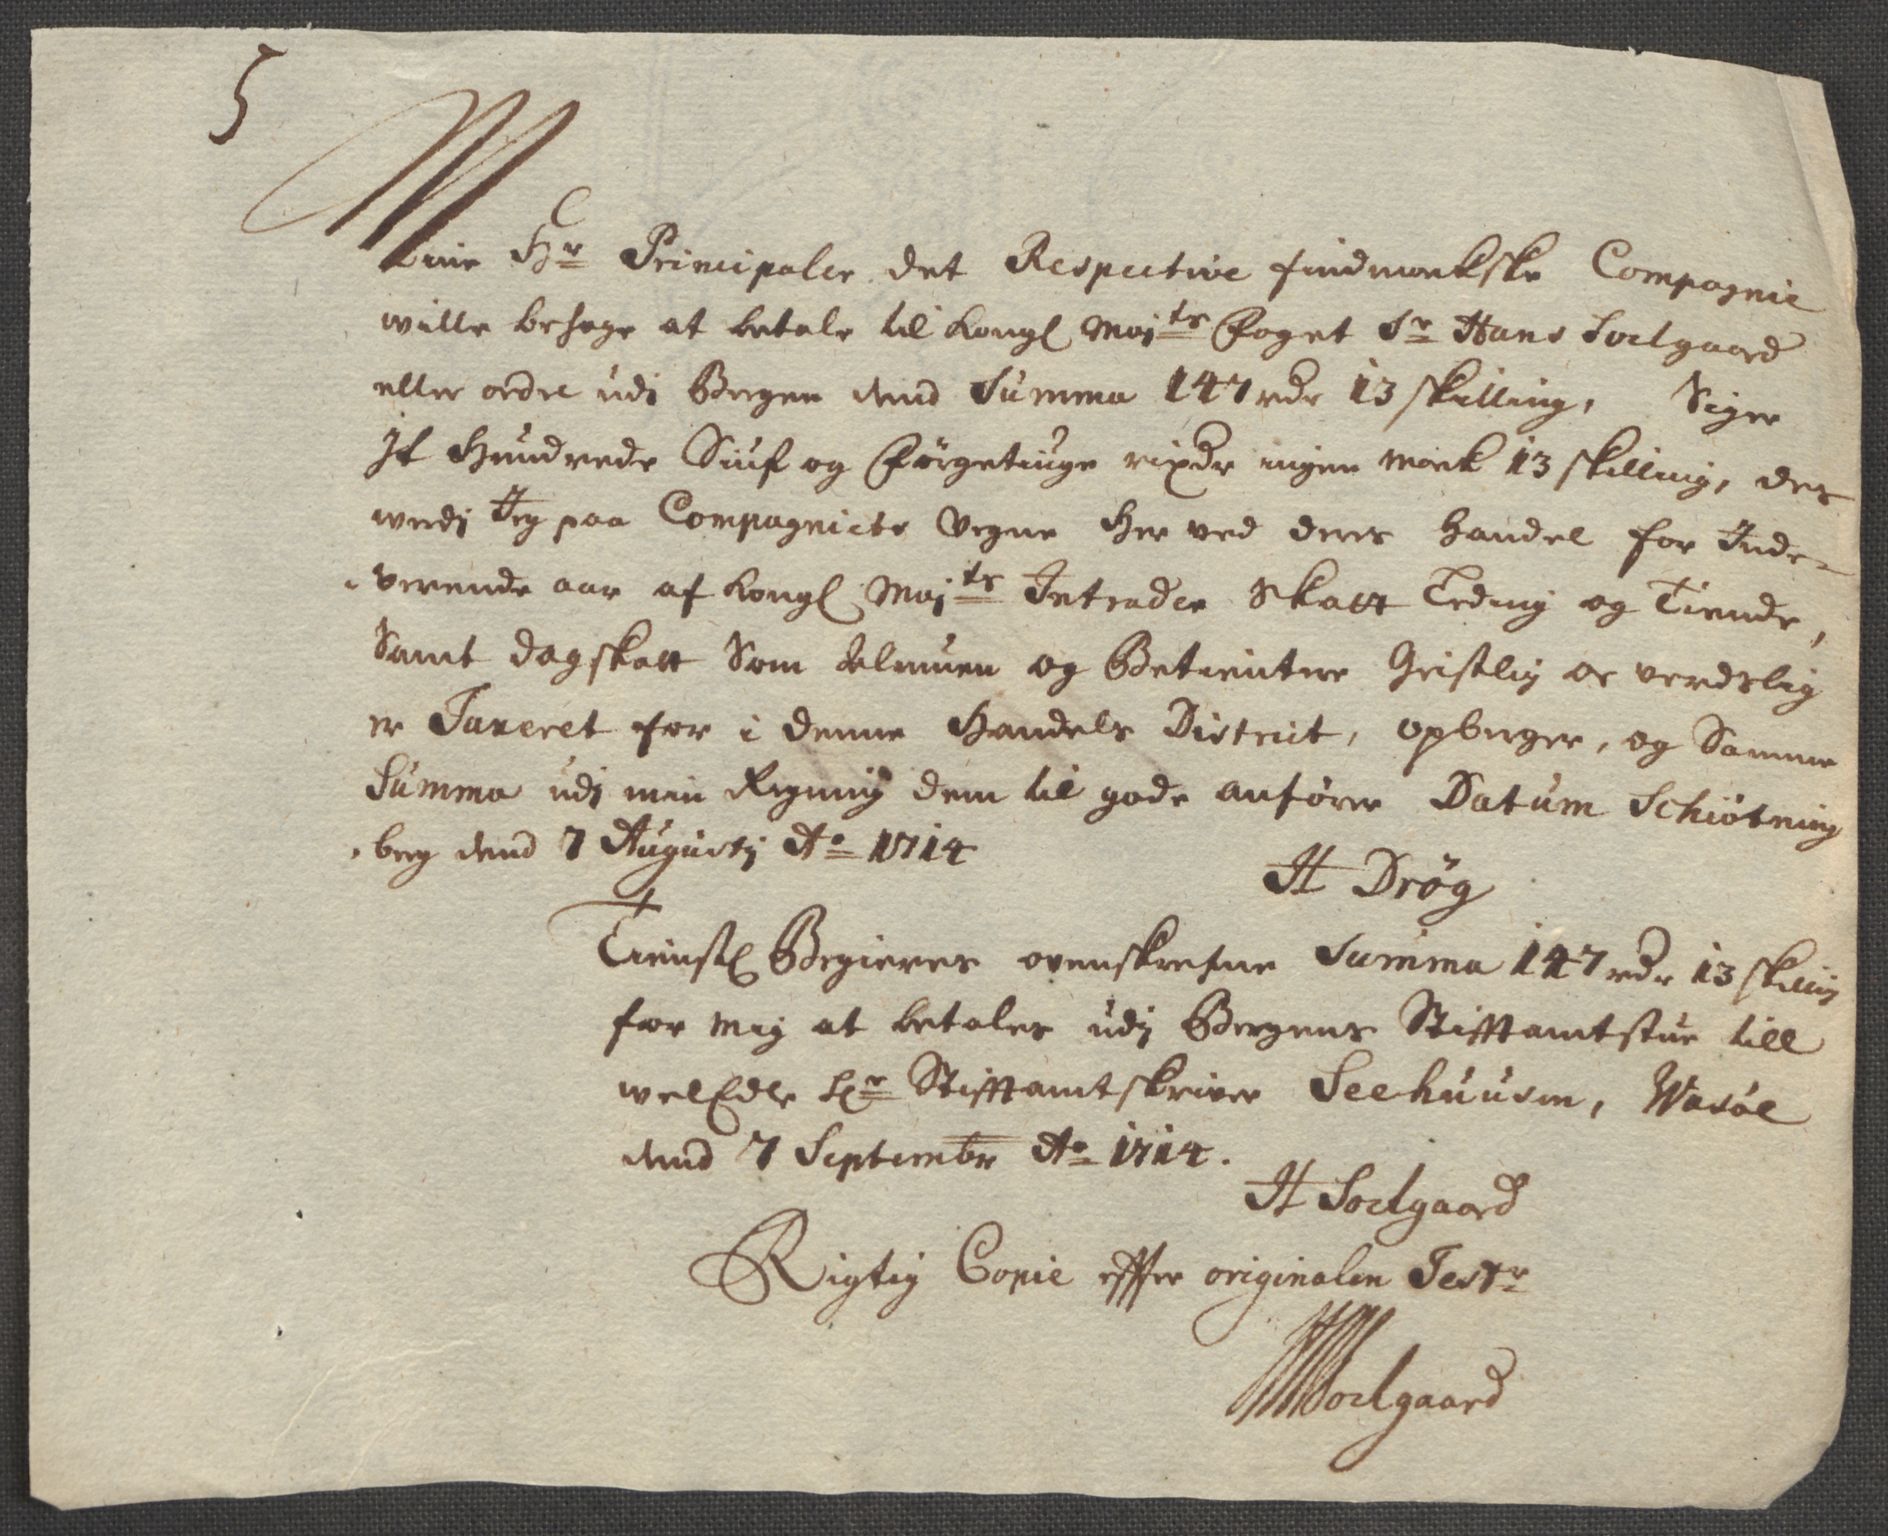 5
Mine Hr Principaler det Respective findmarkske Compagnie
wille behage at betale til Kongl Majts Foget Sr Hans Soelgaard
eller ordre udi Bergen dend Summa 147 rdr 13 skilling, Siger
It Hundrede Siuf og Förgetiuge rixdr ingen mark 13 skilling, des
werdj Jeg paa Compagniets Vegne Her ved deres Handel for Inde-
verende aar af Kongl Majts Intrader Skatt Leding og Tiende,
Samt dagskatt Som Almuen og Betienter Geistlig oc verdslig
er Taxeret for i denne Handels District, opberger, og Samme
Summa udj min Regning dem til gode anförer Datum Schiötning
berg dend 7 Augustj Ao 1714
H Drög
Tienstl Begieres ovenskrefne Summa 147 rdr 13 skilling
for mig at betales udj Bergens Stifftamtstue till
welEdle Hr Stifftamtskriver Seehuusen, Wasöe
dend 7 Septembr Ao 1714.
H Soelgaard
Rigtig Copie effter originalen Testr
HSoelgaard